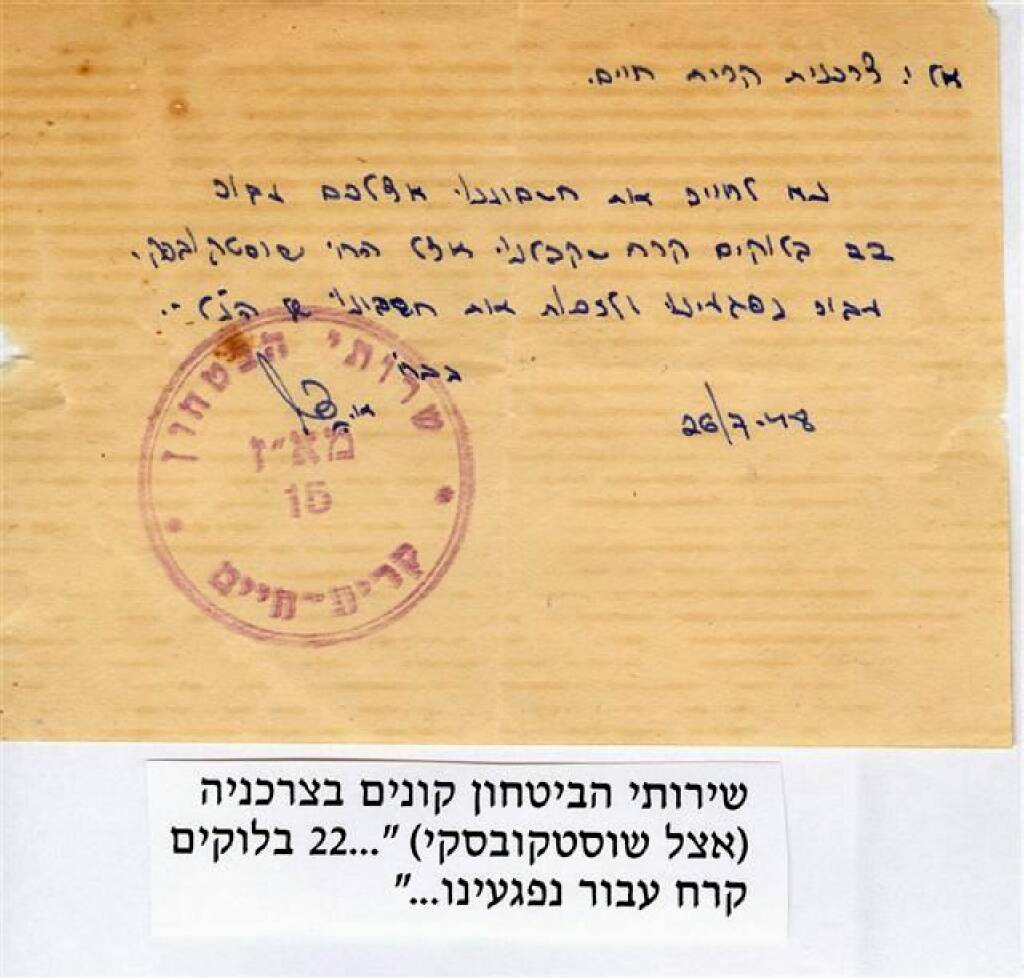 אל י. צרכנית קרית חיים.
נא לחייב את חשבוננו אצלכם עבור
22 בלוקים קרח שקבלנו אצל הח' שוסטקובסקי.
עבור נפגעינו ולזכות את חשבונו של הנ"ל –.
בברכה
26/7-48
שרותי הבטחון
מא״ז
15
קרית-חיים
שירותי הביטחון קונים בצרכניה
(אצל שוסטקובסקי) "...22 בלוקים
קרח עבור נפגעינו..."